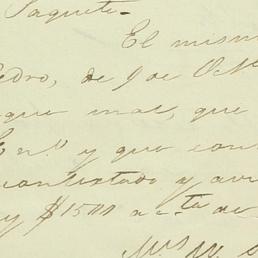 Paquete.
El mism
Pedro, de 9 de Oct
que mas, que
En.º y que con
contestado y avi
y $1500 a c.ta de
M.s M.